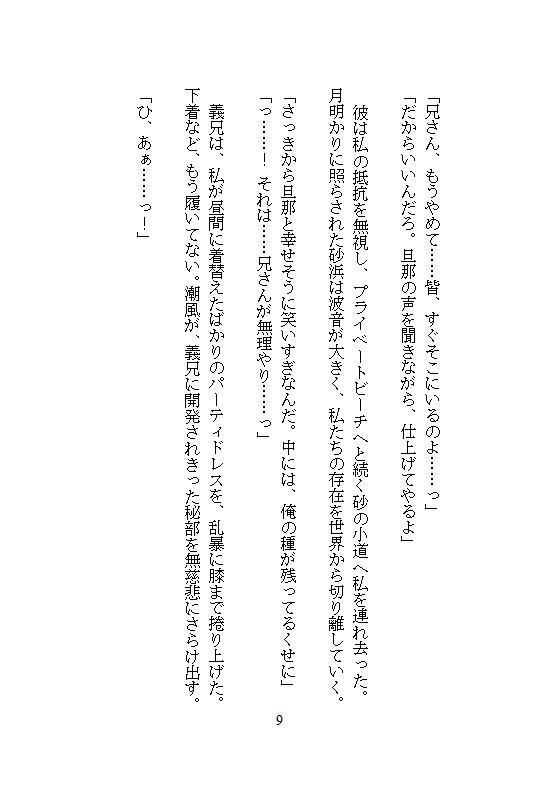 「兄さん、もうやめて……皆、すぐそこにいるのよ……っ」
「だからいいんだろ。旦那の声を聞きながら、仕上げてやるよ」
　彼は私の抵抗を無視し、プライベートビーチへと続く砂の小道へ私を連れ去った。
月明かりに照らされた砂浜は波音が大きく、私たちの存在を世界から切り離していく。
「さっきから旦那と幸せそうに笑いすぎなんだ。中には、俺の種が残ってるくせに」
「っ……！ それは……兄さんが無理やり……っ」
　義兄は、私が昼間に着替えたばかりのパーティドレスを、乱暴に膝まで捲り上げた。
下着など、もう履いてない。潮風が、義兄に開発されきった秘部を無慈悲にさらけ出す。
「ひ、あぁ……っ！」
9